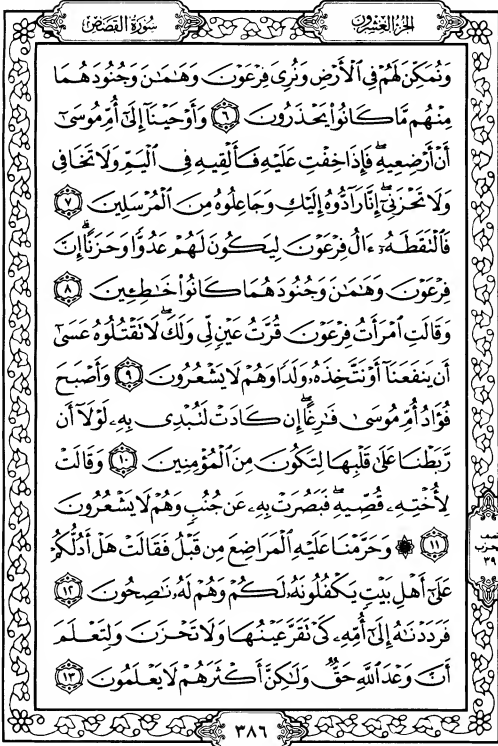 سُورَةُ القَصَصِ
الجُزْءُ العِشْرُونَ
وَنُمَكِّنَ لَهُمْ فِي ٱلْأَرْضِ وَنُرِيَ فِرْعَوْنَ وَهَٰمَٰنَ وَجُنُودَهُمَا
مِنْهُم مَّا كَانُوا۟ يَحْذَرُونَ ٦ وَأَوْحَيْنَآ إِلَىٰٓ أُمِّ مُوسَىٰٓ
أَنْ أَرْضِعِيهِ ۖ فَإِذَا خِفْتِ عَلَيْهِ فَأَلْقِيهِ فِي ٱلْيَمِّ وَلَا تَخَافِي
وَلَا تَحْزَنِيٓ ۖ إِنَّا رَآدُّوهُ إِلَيْكِ وَجَاعِلُوهُ مِنَ ٱلْمُرْسَلِينَ ٧
فَٱلْتَقَطَهُۥٓ ءَالُ فِرْعَوْنَ لِيَكُونَ لَهُمْ عَدُوًّا وَحَزَنًا ۗ إِنَّ
فِرْعَوْنَ وَهَٰمَٰنَ وَجُنُودَهُمَا كَانُوا۟ خَٰطِـِٔينَ ٨
وَقَالَتِ ٱمْرَأَتُ فِرْعَوْنَ قُرَّتُ عَيْنٍ لِّي وَلَكَ ۖ لَا تَقْتُلُوهُ عَسَىٰٓ
أَن يَنفَعَنَآ أَوْ نَتَّخِذَهُۥ وَلَدًا وَهُمْ لَا يَشْعُرُونَ ٩ وَأَصْبَحَ
فُؤَادُ أُمِّ مُوسَىٰ فَٰرِغًا ۖ إِن كَادَتْ لَتُبْدِي بِهِۦ لَوْلَآ أَن
رَّبَطْنَا عَلَىٰ قَلْبِهَا لِتَكُونَ مِنَ ٱلْمُؤْمِنِينَ ١٠ وَقَالَتْ
لِأُخْتِهِۦ قُصِّيهِ ۖ فَبَصُرَتْ بِهِۦ عَن جُنُبٍ وَهُمْ لَا يَشْعُرُونَ
١١ ۞ وَحَرَّمْنَا عَلَيْهِ ٱلْمَرَاضِعَ مِن قَبْلُ فَقَالَتْ هَلْ أَدُلُّكُمْ
عَلَىٰٓ أَهْلِ بَيْتٍ يَكْفُلُونَهُۥ لَكُمْ وَهُمْ لَهُۥ نَٰصِحُونَ ١٢
فَرَدَدْنَٰهُ إِلَىٰٓ أُمِّهِۦ كَيْ تَقَرَّ عَيْنُهَا وَلَا تَحْزَنَ وَلِتَعْلَمَ
أَنَّ وَعْدَ ٱللَّهِ حَقٌّ وَلَٰكِنَّ أَكْثَرَهُمْ لَا يَعْلَمُونَ ١٣
٣٩
٣٨٦